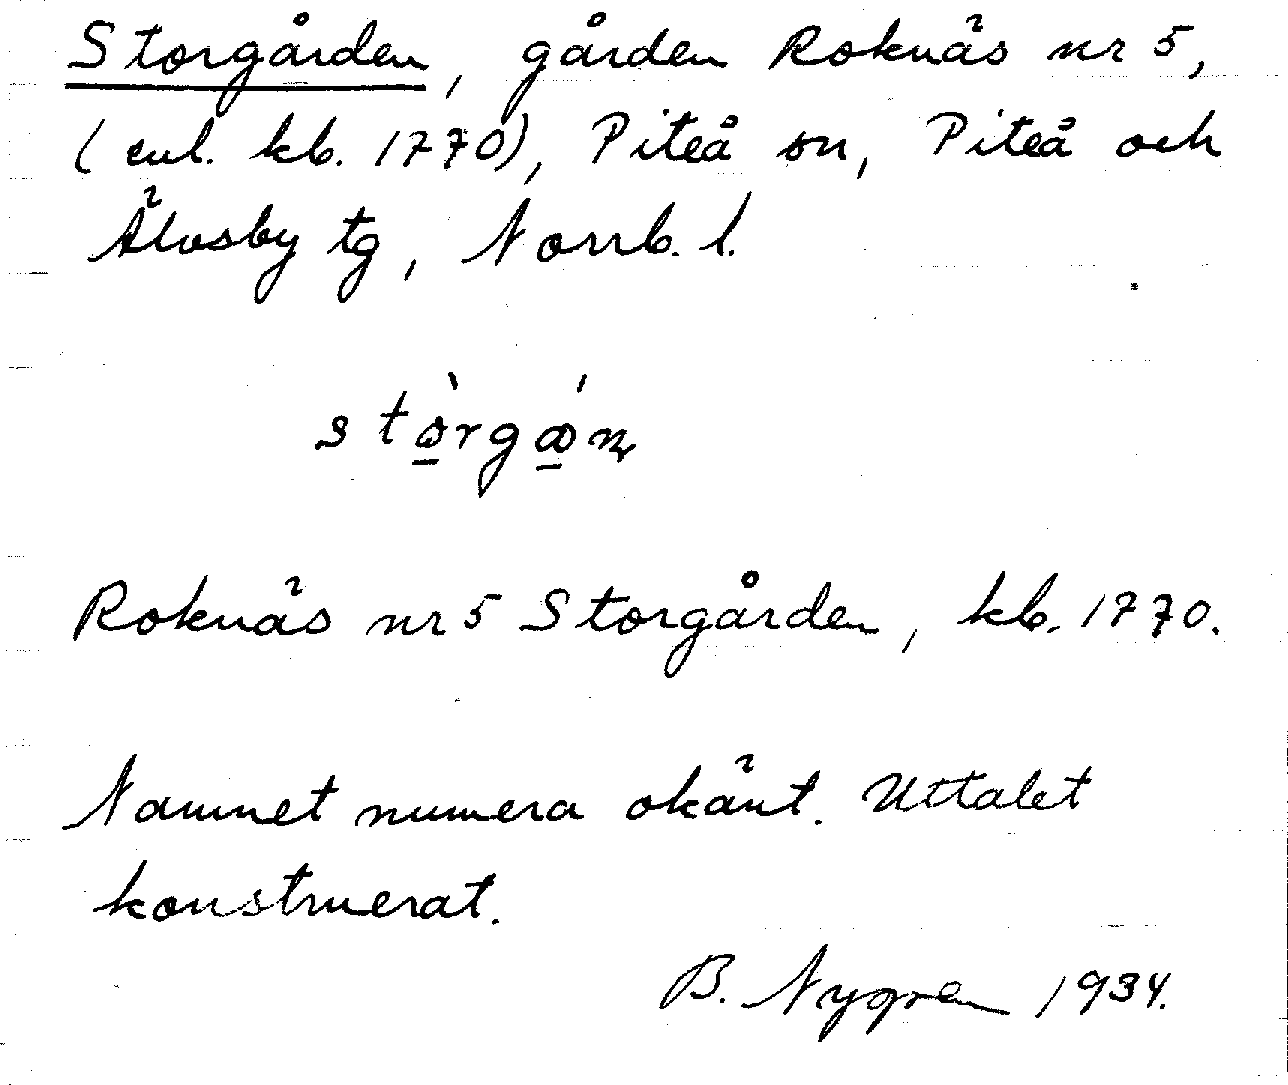 Storgården, gården Roknäs nr 5,
(enl. kb. 1770), Piteå sn, Piteå och
Älvsby tg, Norrb. l.
Roknäs nr 5 Storgården, kb. 1770.
Namnet numera okänt. Uttalet
konstruerat.
B. Nygren 1934.